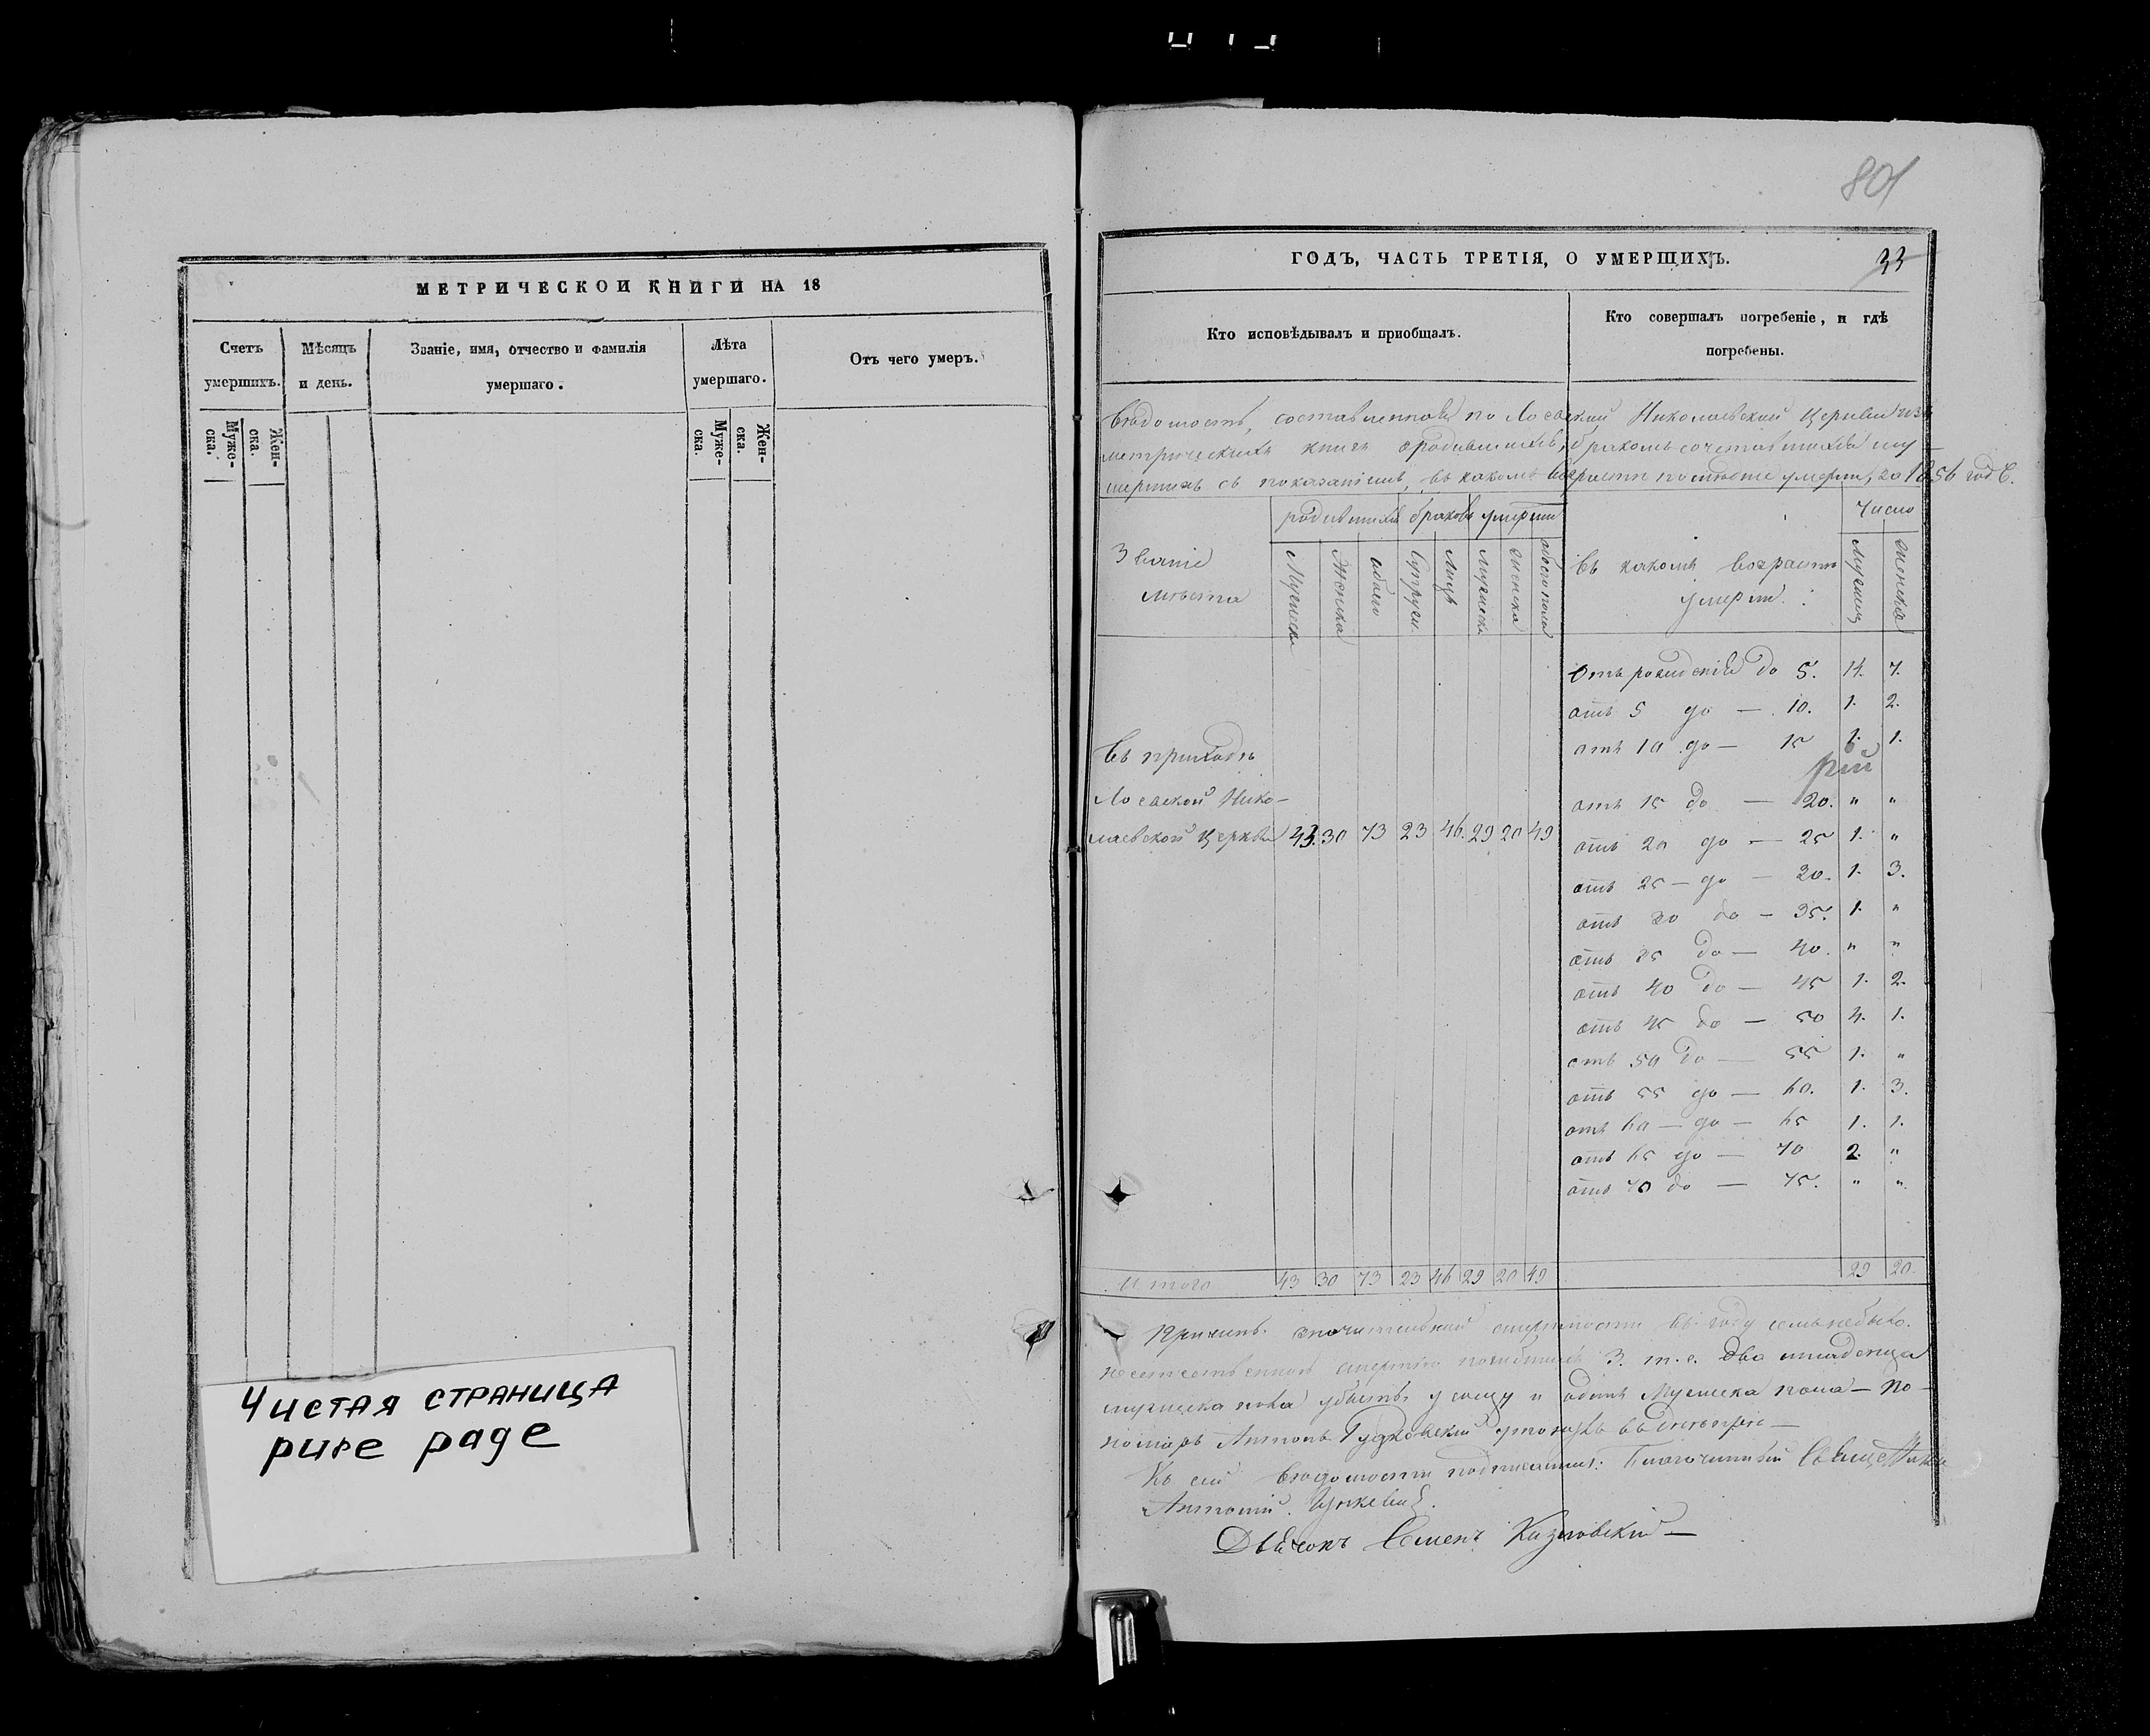 МЕТРИЧЕСКОЙ КНИГИ НА 18
Счетъ умершихъ.
Мѣсяцъ и день.
Званіе, имя, отчество и фамилія умершаго.
Лѣта умершаго.
Отъ чего умеръ.
Муже-
ска.
Жен-
ска.
Муже-
ска.
Жен-
ска.
Чистая страница
pure page
801
ГОДЪ, ЧАСТЬ ТРЕТІЯ, О УМЕРШИХЪ.
33
Кто исповѣдывалъ и приобщалъ.
Кто совершалъ погребеніе, и гдѣ
погребены.
Вѣдомость, составленная по Николаевской Церкви изъ
метрическихъ книгъ о родившихся, бракомъ сочетавшихся и у-
мершихъ съ показаніемъ, въ какомъ возрастѣ умерли, за 1856 годъ.
родившихся браковъ умерши
Число
Званіе
мѣста
Мужеска
Женска
обоего
Супруж.
Лицъ
Мужеска
Женска
обоего пола
въ какомъ возрастѣ
умерли.
Мужеск
Женска
Отъ рожденія до 5. 14. 7.
отъ 5 до — 10. 1. 2.
отъ 10 до — 15 1. 1.
отъ 15 до — 20. " "
отъ 20 до — 25 1. "
отъ 25 — до — 30. 1. 3.
отъ 30 до — 35. 1. "
отъ 35 до — 40. " "
отъ 40 до — 45 1. 2.
отъ 45 до — 50 4. 1.
отъ 50 до — 55 1. "
отъ 55 до — 60. 1. 3.
отъ 60 — до — 65 1. 1.
отъ 65 до — 70 2. "
отъ 70 до — 75. " "
Въ приходѣ
Нико-
лаевской Церкви 43. 30 73 23 46. 29 20 49
Итого 43 30 73 23 46 29 20 49
29 20.
Причинъ значительной смертности въ году семъ небыло.
неестественною смертію 3. т. е. два младенца
мужеска пола и одинъ Мужеска пола — По-
номарь Антонъ
Къ сей вѣдомости подписались: Благочинный Священникъ
Антоній
Дьячокъ Семенъ